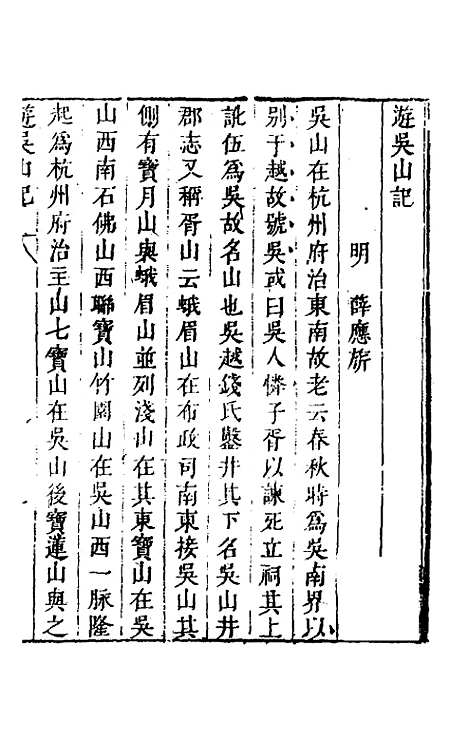 遊吳山記
明　薛應旂
吳山在杭州府治東南故老云春秋時爲吳南界以
别于越故號吳或曰吳人憐子胥以諫死立祠其上
訛伍爲吳故名山也吳越錢氏鑿井其下名吳山井
郡志又稱胥山云蛾眉山在布政司南東接吳山其
側有寶月山與蛾眉山並列淺山在其東寶山在吳
山西南石佛山西聯寶山竹園山在吳山西一脉隆
起爲杭州府治主山七寶山在吳山後寶蓮山與之
遊吳山記　一